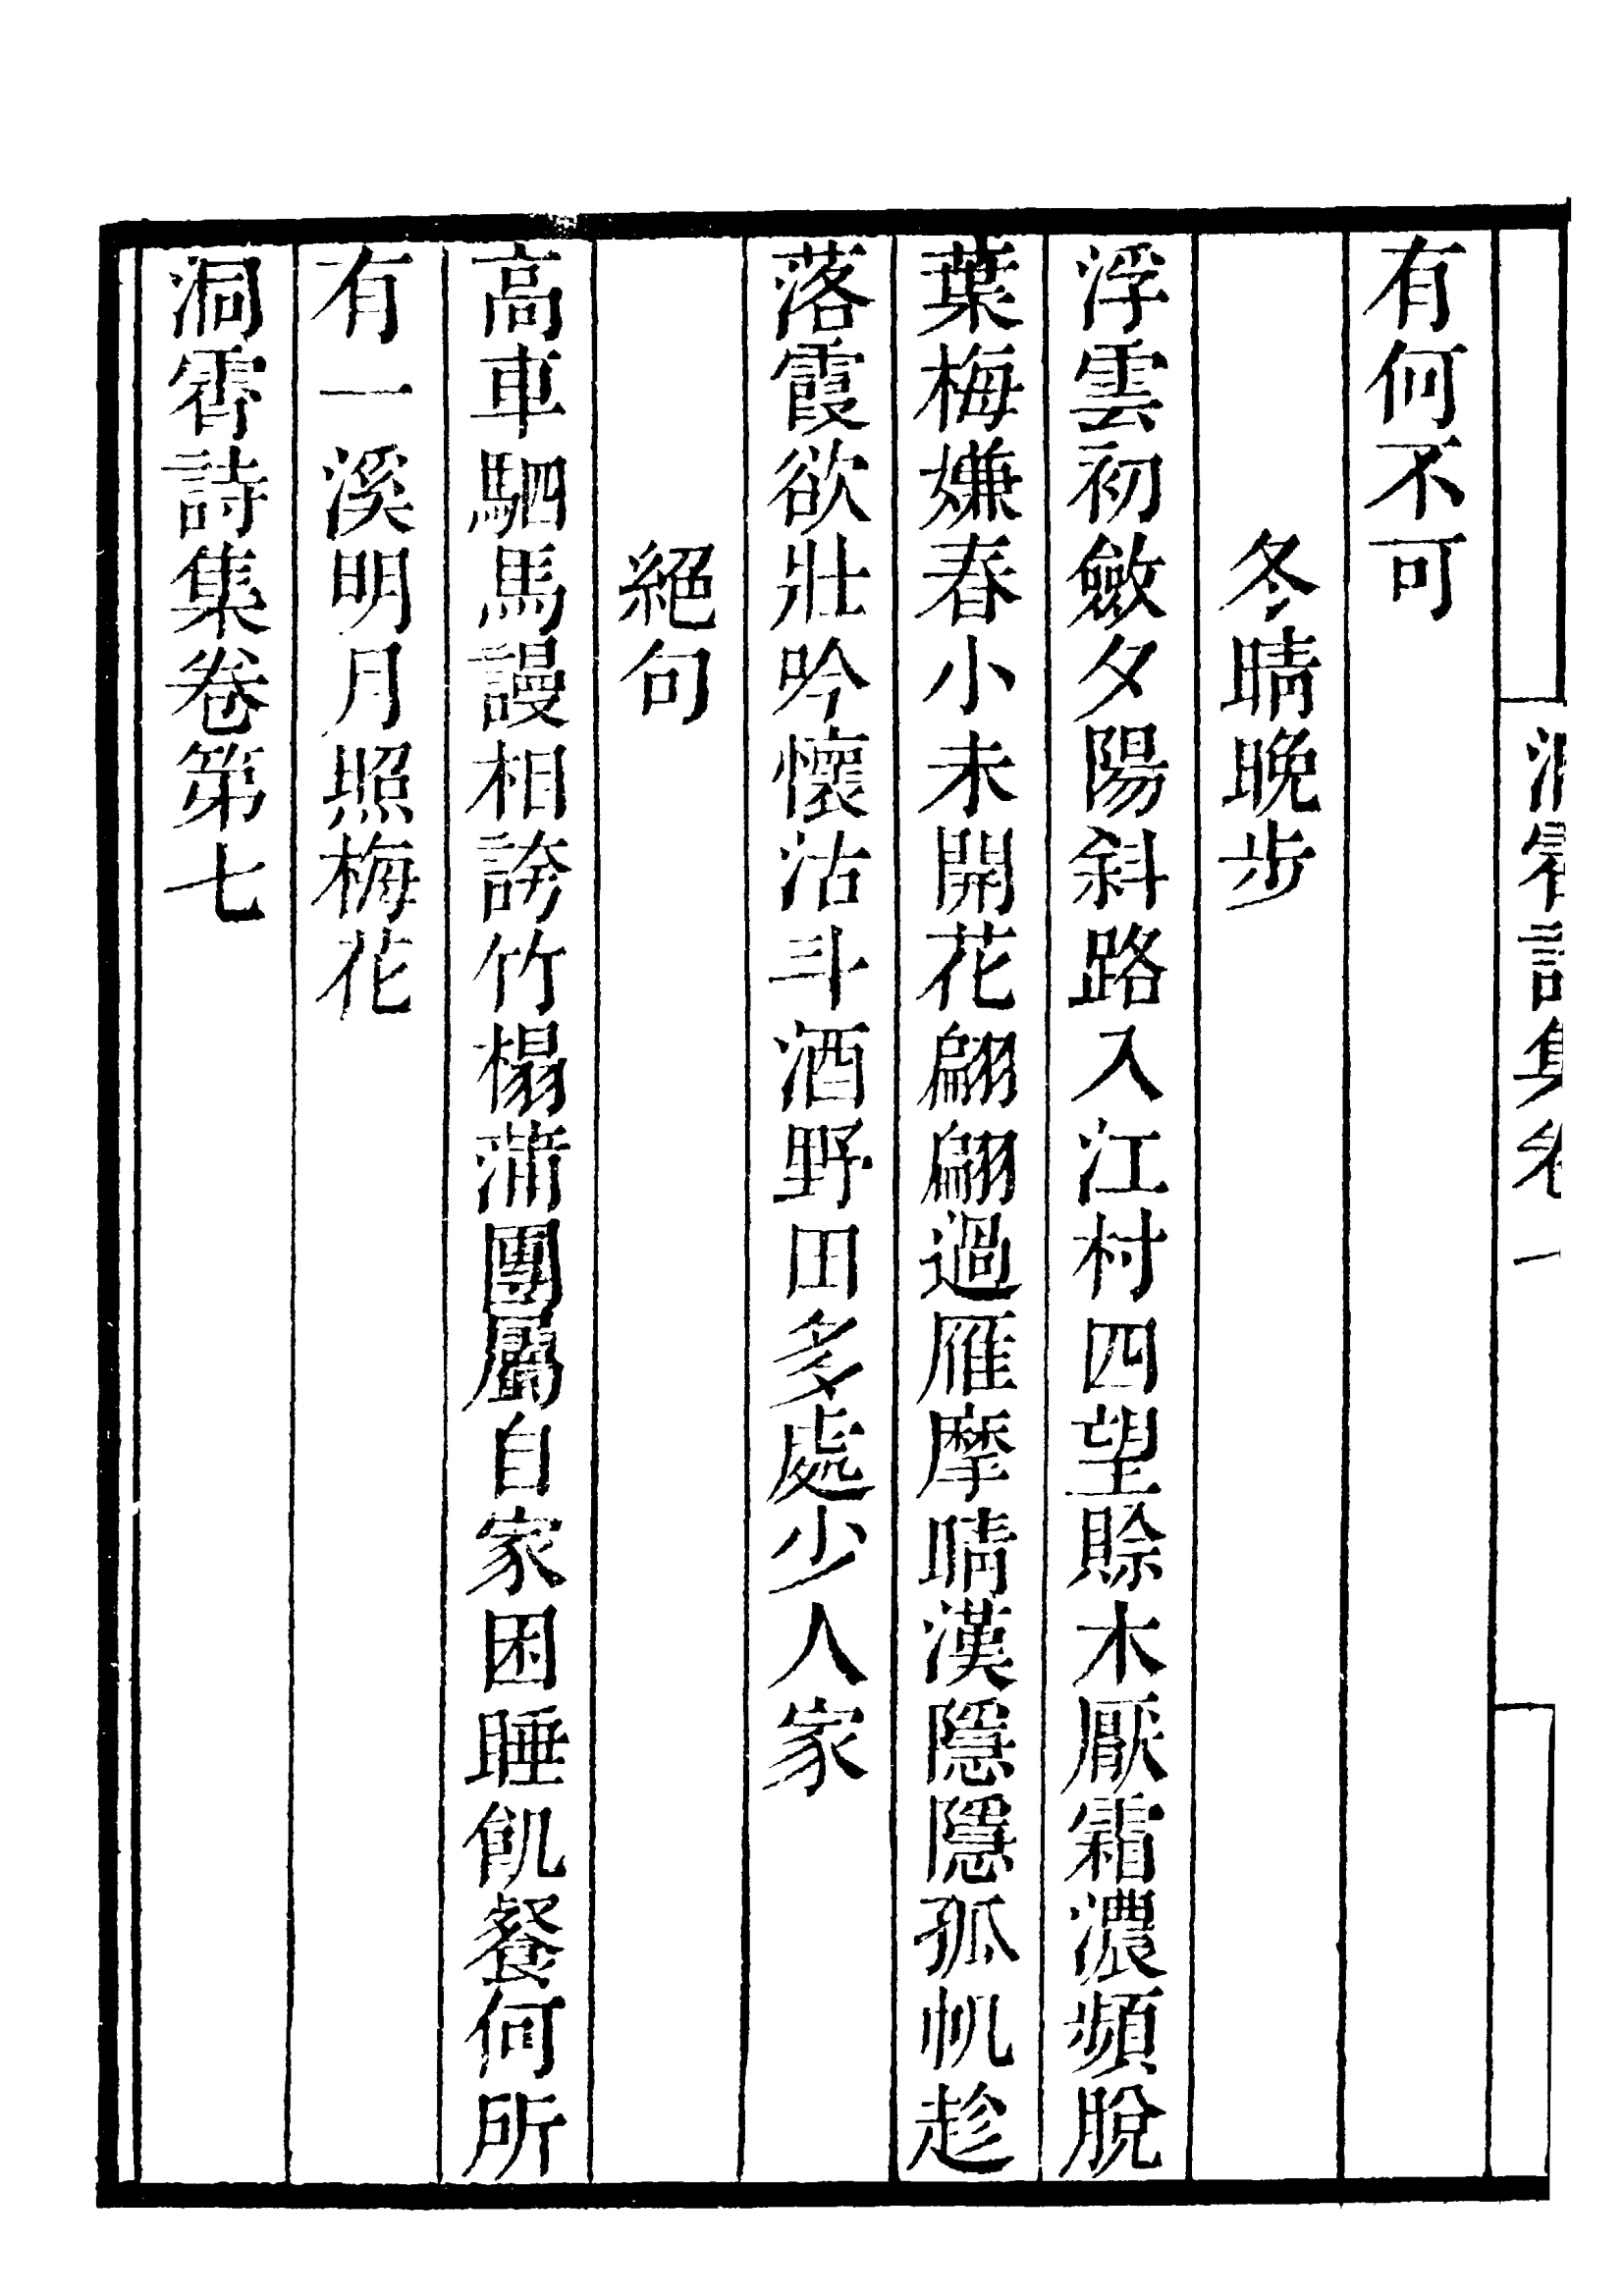 有何不可
冬晴晚步
浮雲初斂夕陽斜路入江村四望賒木厭霜濃頻脫
葉梅嫌春小未開花翩翩過雁摩晴漢隱隱孤帆趁
落霞欲壯吟懷沽斗酒野田多處少人家
絕句
高車駟馬謾相誇竹榻蒲團屬自家困睡飢餐何所
有一溪明月照梅花
洞霄詩集卷第七